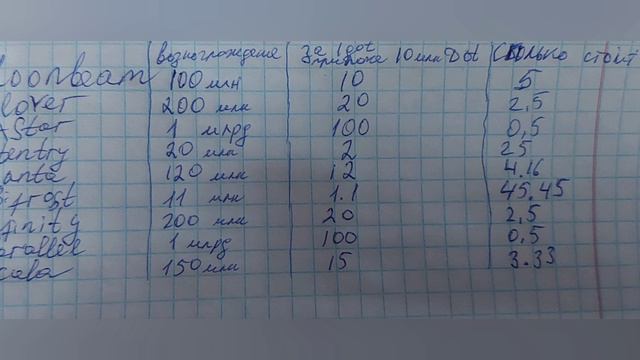 вознаграждение за 1 dot при локе 10 млн Dot сколько стоит
loonbeam 100 млн 10 5
lover 200 млн 20 2,5
Star 1 млрд 100 0,5
entry 20 млн 2 25
anta 120 млн 12 4.16
frost 11 млн 1.1 45,45
finity 200 млн 20 2,5
arallel 1 млрд 100 0.5
cala 150 млн 15 3.33